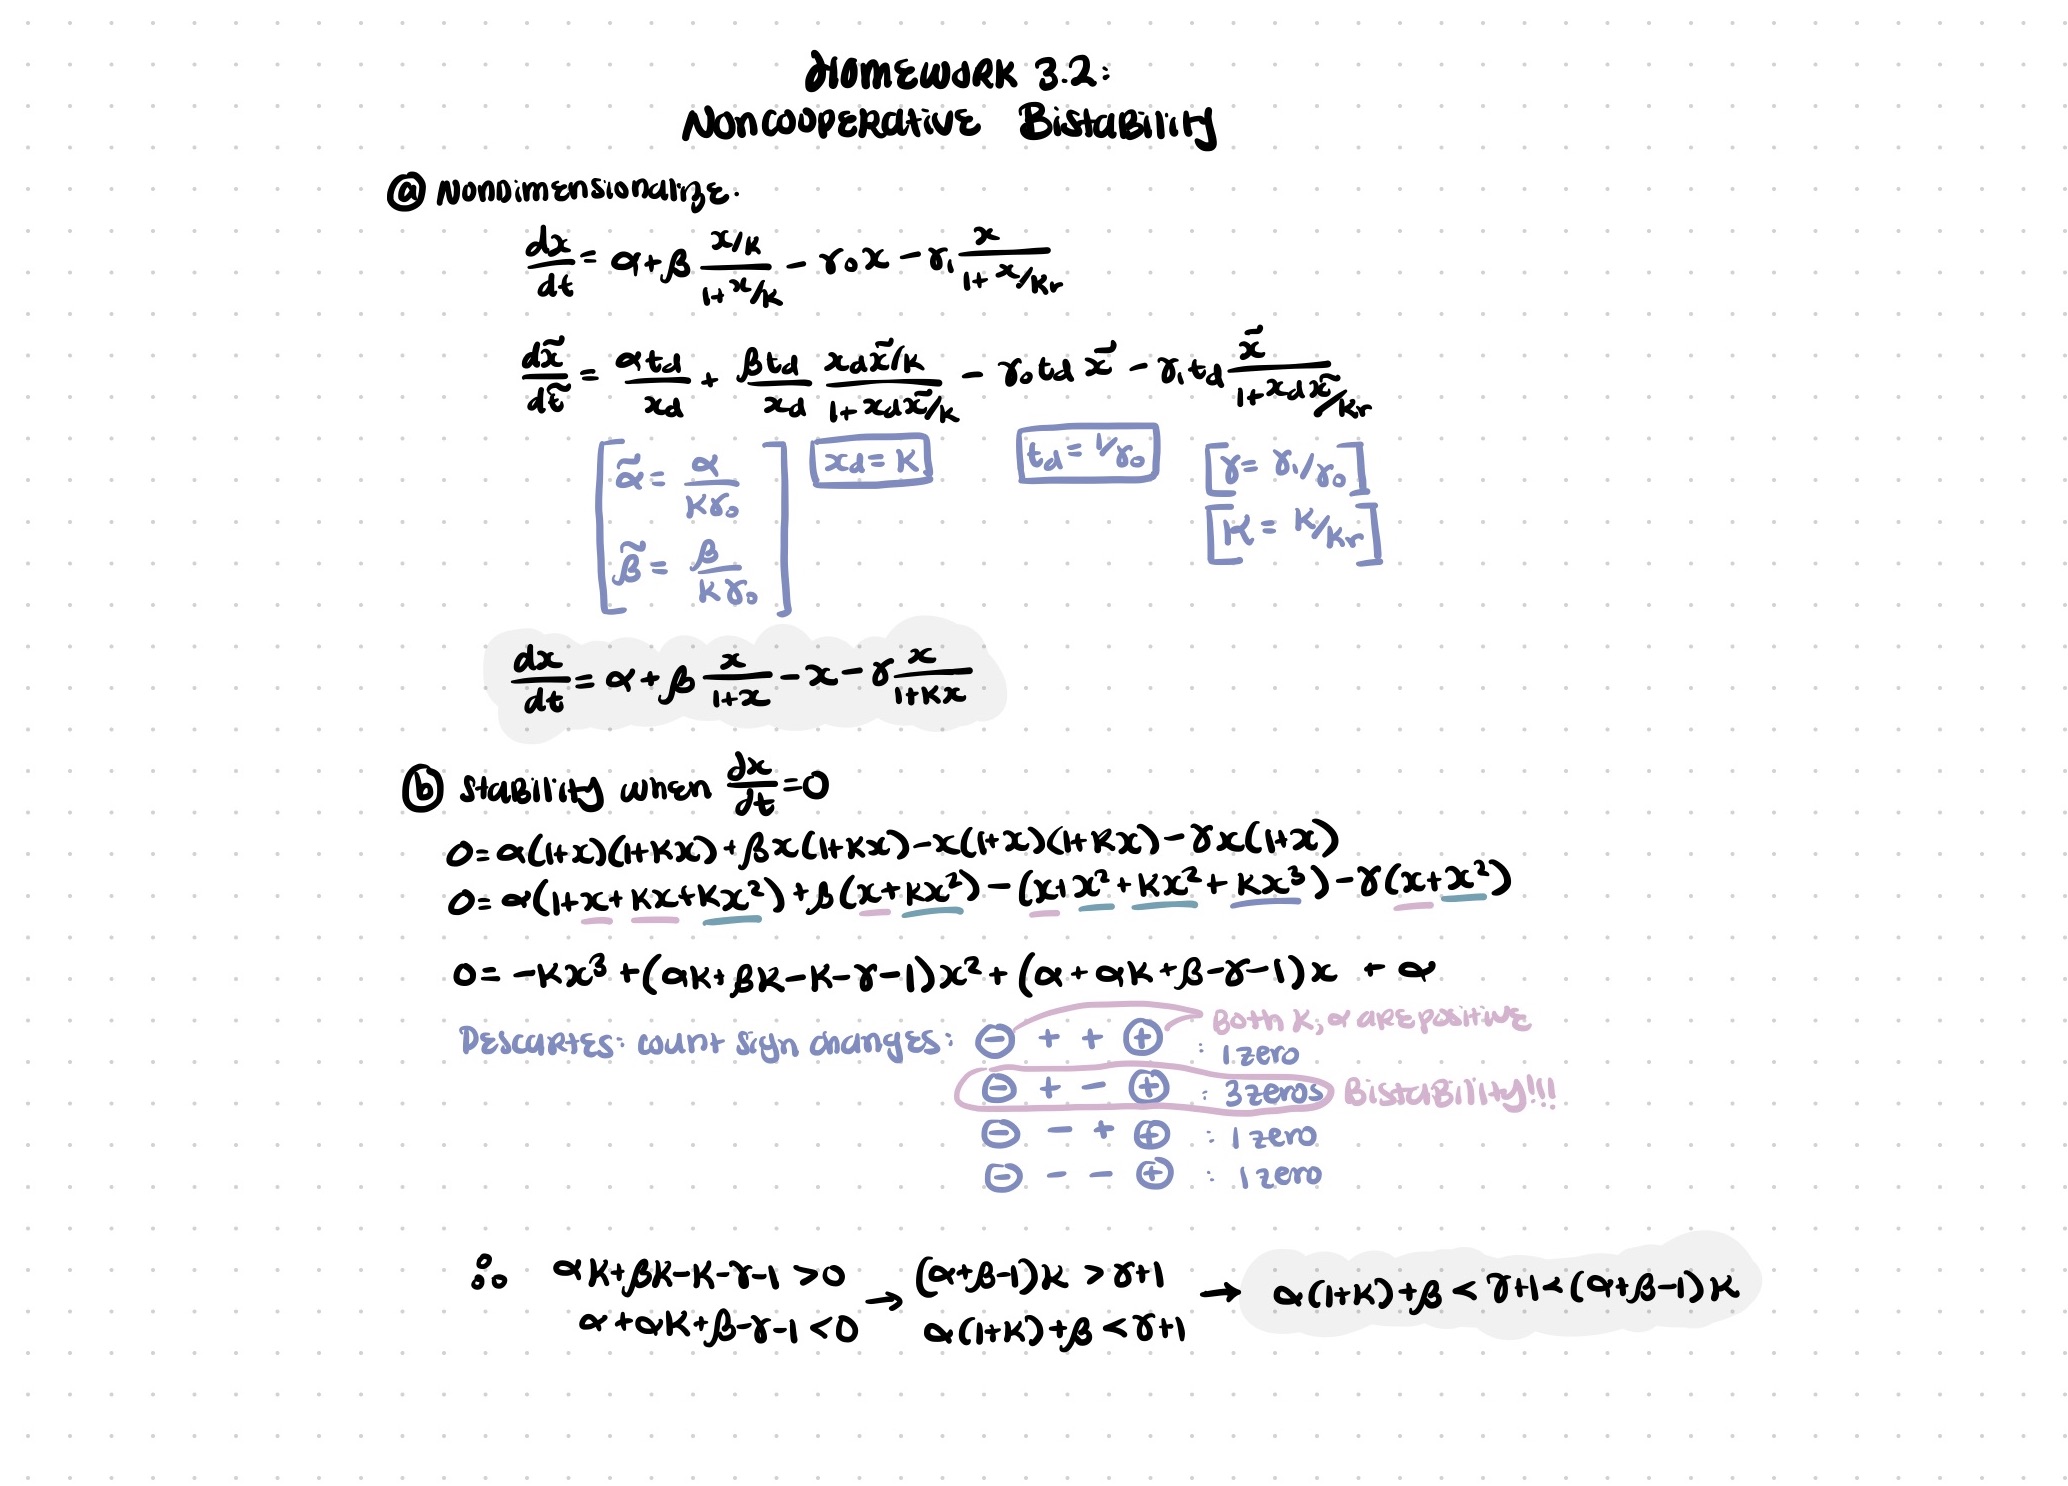 HOMEWORK 3.2:
NONCOOPERATIVE BISTABILITY
ⓐ NONDIMENSIONALIZE.
dx/dt = α + β (x/K)/(1 + x/K) − γ₀x − γ₁ x/(1 + x/Kr)
dx̃/dt̃ = αtd/xd + βtd/xd (xd x̃/K)/(1 + xd x̃/K) − γ₀ td x̃ − γ₁ td x̃/(1 + xd x̃/Kr)
[α̃ = α/(Kγ₀)
β̃ = β/(Kγ₀)]
xd = K
td = 1/γ₀
[γ = γ₁/γ₀]
[K = K/Kr]
dx/dt = α + β x/(1+x) − x − γ x/(1+Kx)
ⓑ STABILITY WHEN dx/dt = 0
0 = α(1+x)(1+Kx) + βx(1+Kx) − x(1+x)(1+Kx) − γx(1+x)
0 = α(1+x+Kx+Kx²) + β(x+Kx²) − (x+x²+Kx²+Kx³) − γ(x+x²)
0 = −Kx³ + (αK+βK−K−γ−1)x² + (α+αK+β−γ−1)x + α
DESCARTES: COUNT SIGN CHANGES:
⊖ + + ⊕ : 1 ZERO
BOTH K, α ARE POSITIVE
⊖ + − ⊕ : 3 ZEROS BISTABILITY!!!
⊖ − + ⊕ : 1 ZERO
⊖ − − ⊕ : 1 ZERO
∴ αK+βK−K−γ−1 > 0 → (α+β−1)K > γ+1 → α(1+K)+β < γ+1 < (α+β−1)K
α+αK+β−γ−1 < 0 α(1+K)+β < γ+1